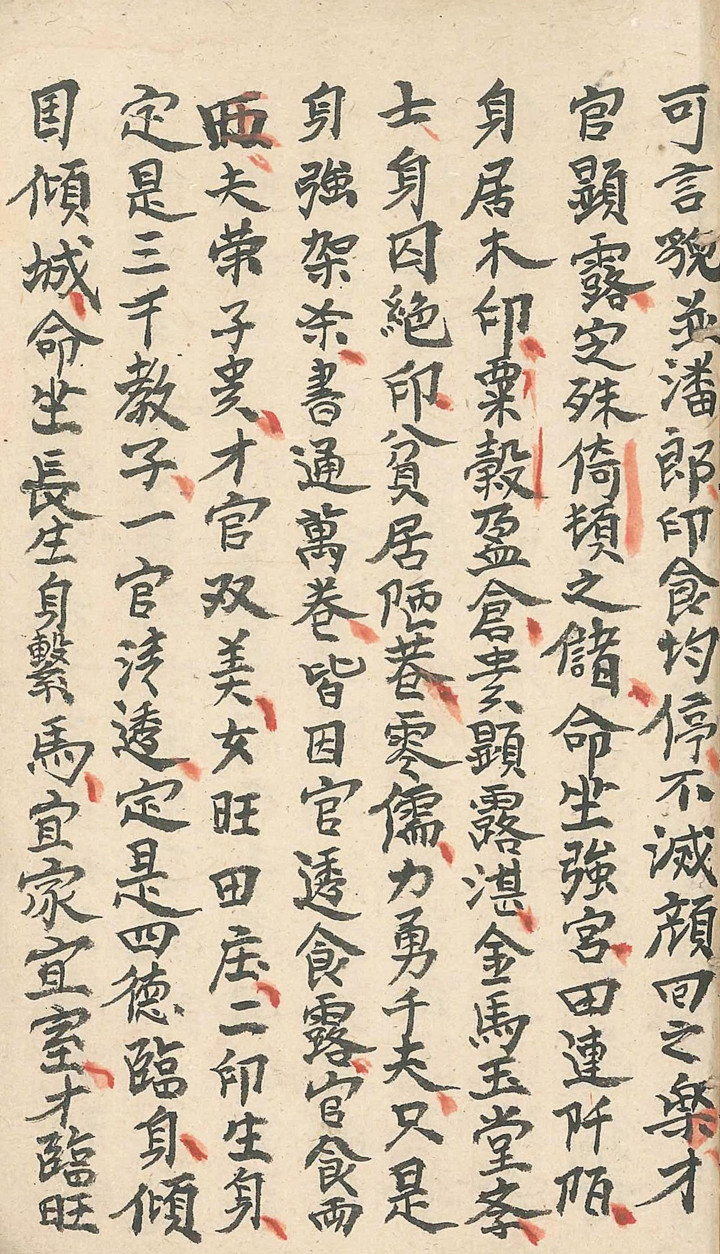 可言貌並潘郎印食均停不滅顔回之樂才
官顕露定殊倚頓之儲命坐強宮田連阡陌
身居木印粟穀盈倉贵顕露湛金馬玉堂斈
士身囚絶印貧居陋巷零儒力勇千夫只是
身強架杀書通萬卷皆因官透食露官食両
夫荣子贵才官双美女旺田庄二印生身
定是三千教子一官清透定是四德臨身傾
囯傾城命坐長生身繫馬宜家宜室才臨旺